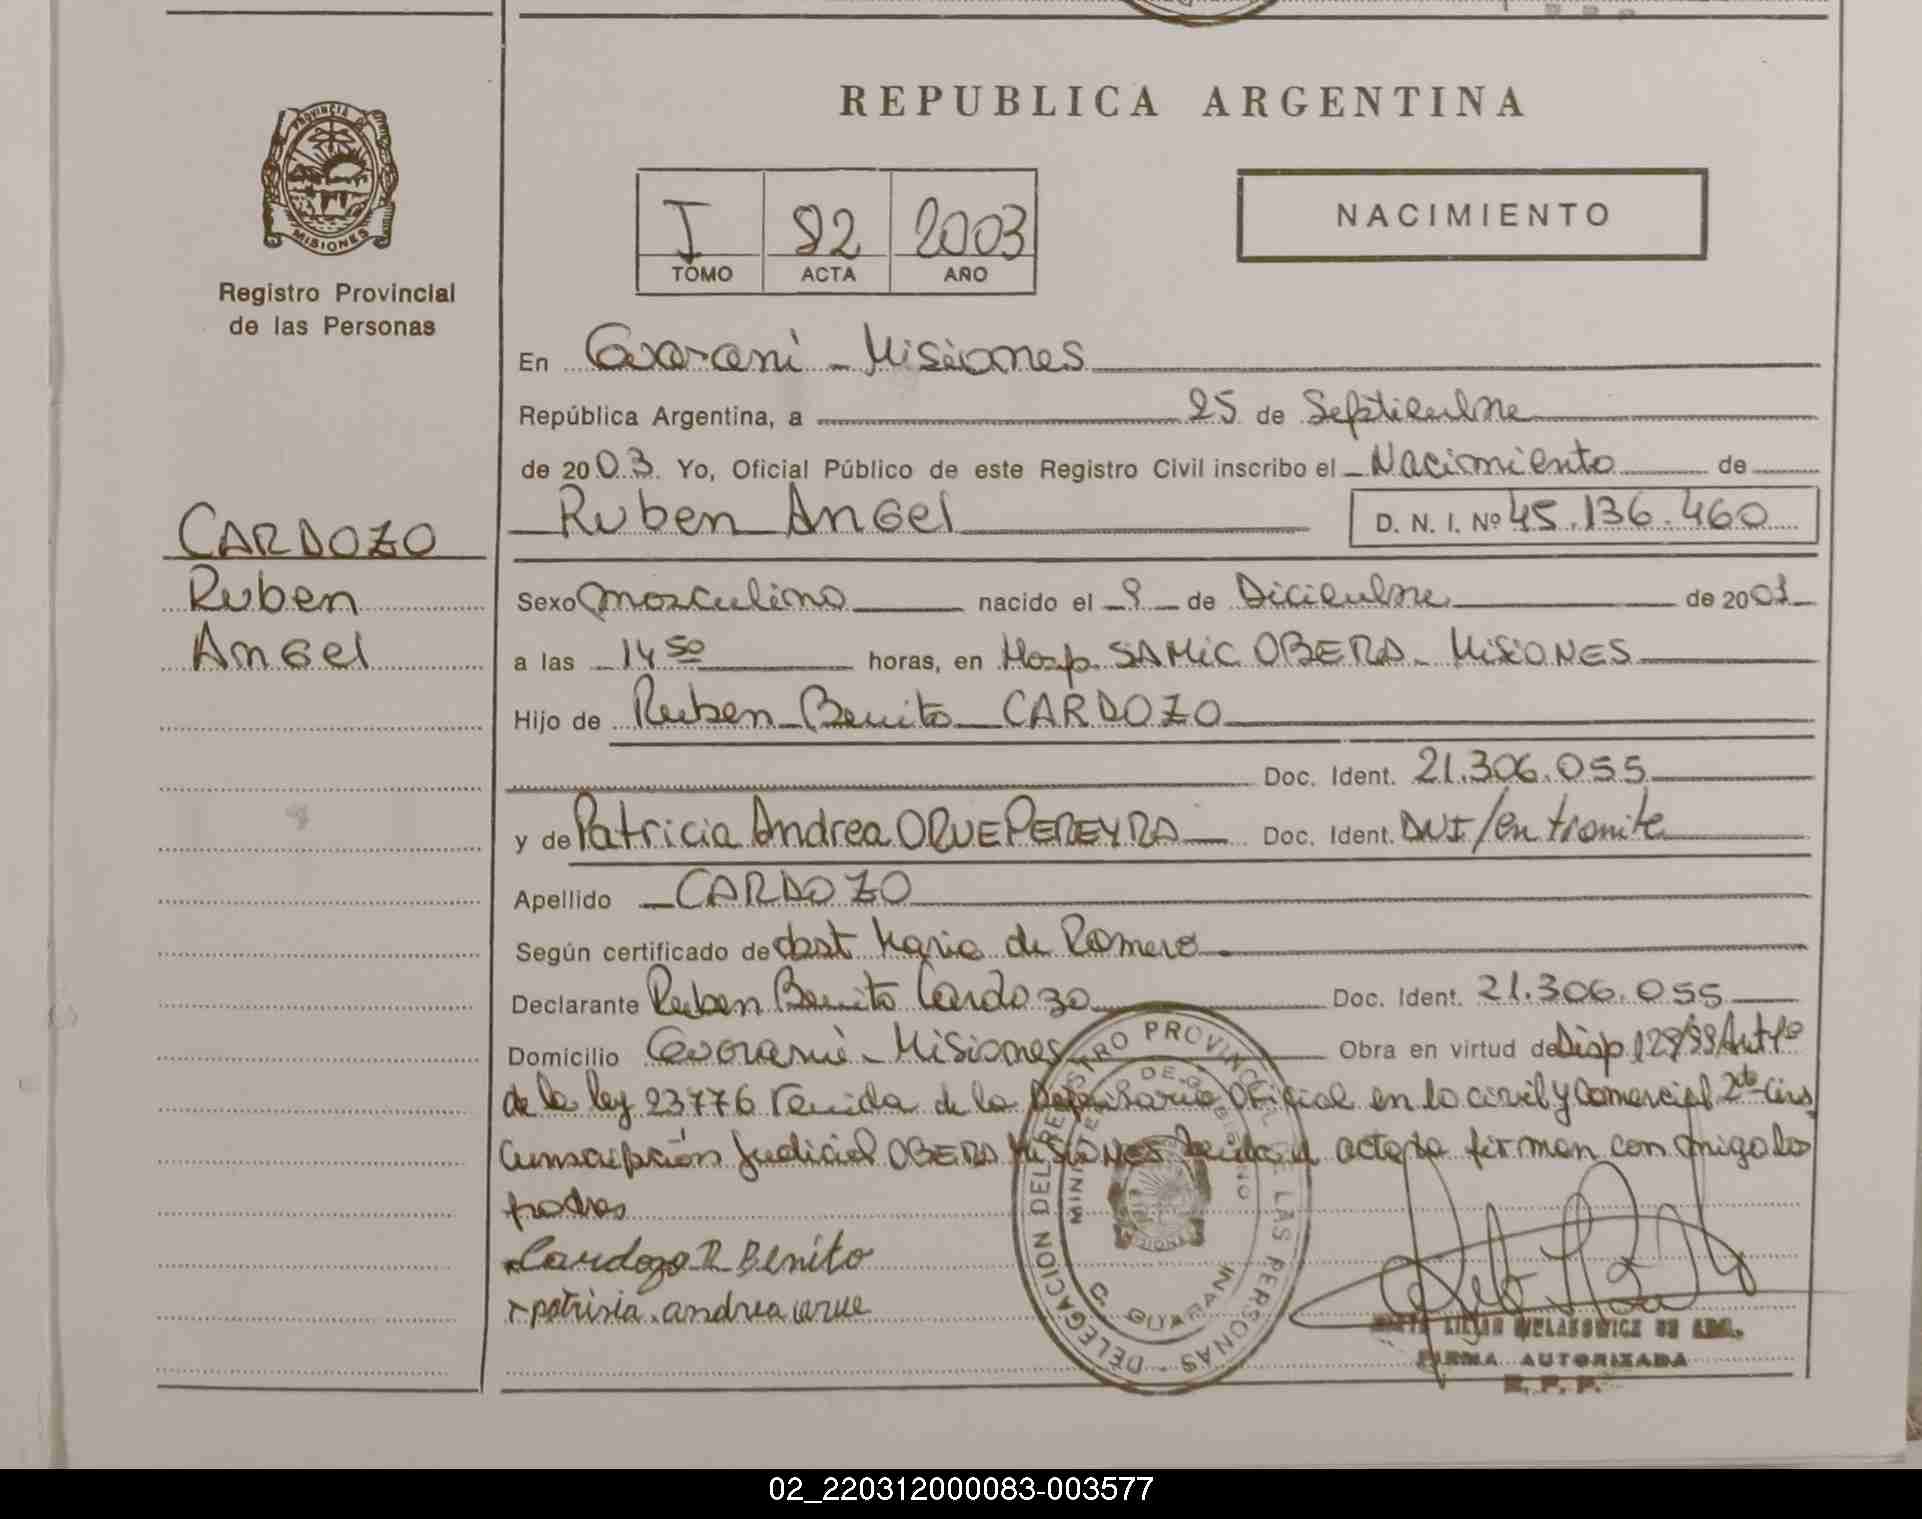 REPUBLICA ARGENTINA
PROVINCIA DE
MISIONES
Registro Provincial
de las Personas
I 82 2003
TOMO ACTA AÑO
NACIMIENTO
En Guarani - Misiones
República Argentina, a 25 de Septiembre
de 2003. Yo, Oficial Público de este Registro Civil inscribo el Nacimiento de
Ruben Angel D. N. I. Nº 45.136.460
CARDOZO
Ruben
Angel
Sexo masculino nacido el 9 de Diciembre de 2001
a las 14 50 horas, en Hosp. SAMIC OBERA - MISIONES
Hijo de Ruben Benito CARDOZO
Doc. Ident. 21.306.055
y de Patricia Andrea ORUE PEREYRA Doc. Ident. DNI/en tramite
Apellido CARDOZO
Según certificado de obst Maria de Romero
Declarante Ruben Benito Cardozo Doc. Ident. 21.306.055
Domicilio Guarani - Misiones Obra en virtud de Disp 129/99 Art 1º
de la ley 23776 venida de la Defensoria Oficial en lo civil y Comercial 2da Cirs
cunscripción Judicial OBERA MISIONES acta firman conmigo los
padres
Cardozo R Benito
x patrisia andrea orue
DELEGACION DEL REGISTRO PROVINCIAL DE LAS PERSONAS
MINISTERIO DE GOBIERNO
C. GUARANI
MISIONES
FIRMA AUTORIZADA
R. P. P.
02_220312000083-003577